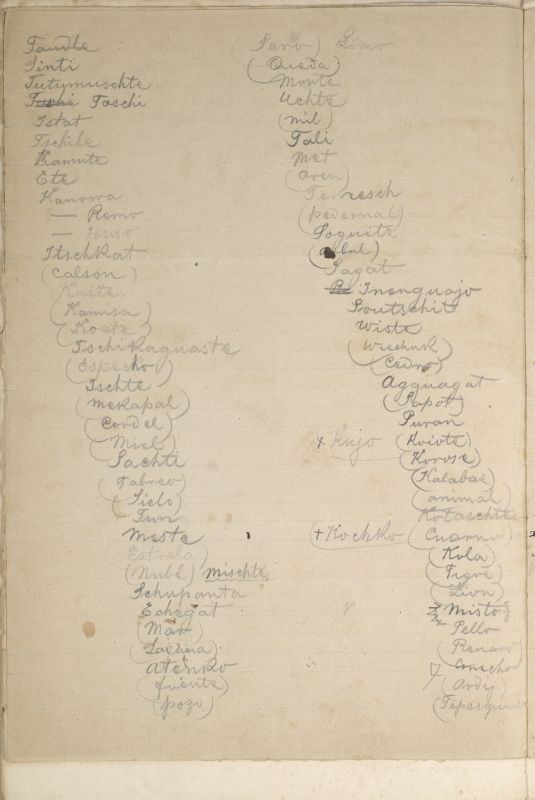 Taudle
Sinti
Tutymuschte
Taschi
Istat
Tschile
Kamute
Ete
Kanowa
— Remo
— Huso
Itschkat
(Calson)
Kalte
(Kamisa)
(Koete)
Tschikaguaste
(Especko)
Ischte
(mekapal)
(Cordel)
(Miel)
Sachti
(Fabrev)
(Sielo)
Tun
Meste
Estrela
(Nube) mischte
Schupanta
Echegat
(Mar)
(Laguna)
Atenko
(fuente)
(pozo)
(Pero) Lomo
(Queda)
Monte
Uchte
(mil)
Tali
Met
(aren)
Temesch
(pedernal)
Poquits
Sagat
Inonguajo
Poutschit
Wiste
(Wischuk)
(Cedro)
Agguagat
(Sapot)
Puran
+ Kujo (Koiote)
(Korose)
(Kalabas)
(animal)
Kotaschte
+ Kochko (Cuerno)
(Kola)
(Tigre)
(Lion)
Misto
Pello
(Renaro)
Conecho
(Ardij)